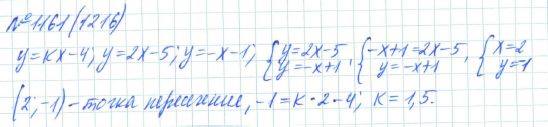 №1161 (1216)
y=кx-4; y=2x-5; y=-x-1; { y=2x-5 y=-x+1; { -x+1=2x-5 y=-x+1, { x=2 y=-1
(2;-1) - точка пересечение, -1=к·2-4; к=1,5.